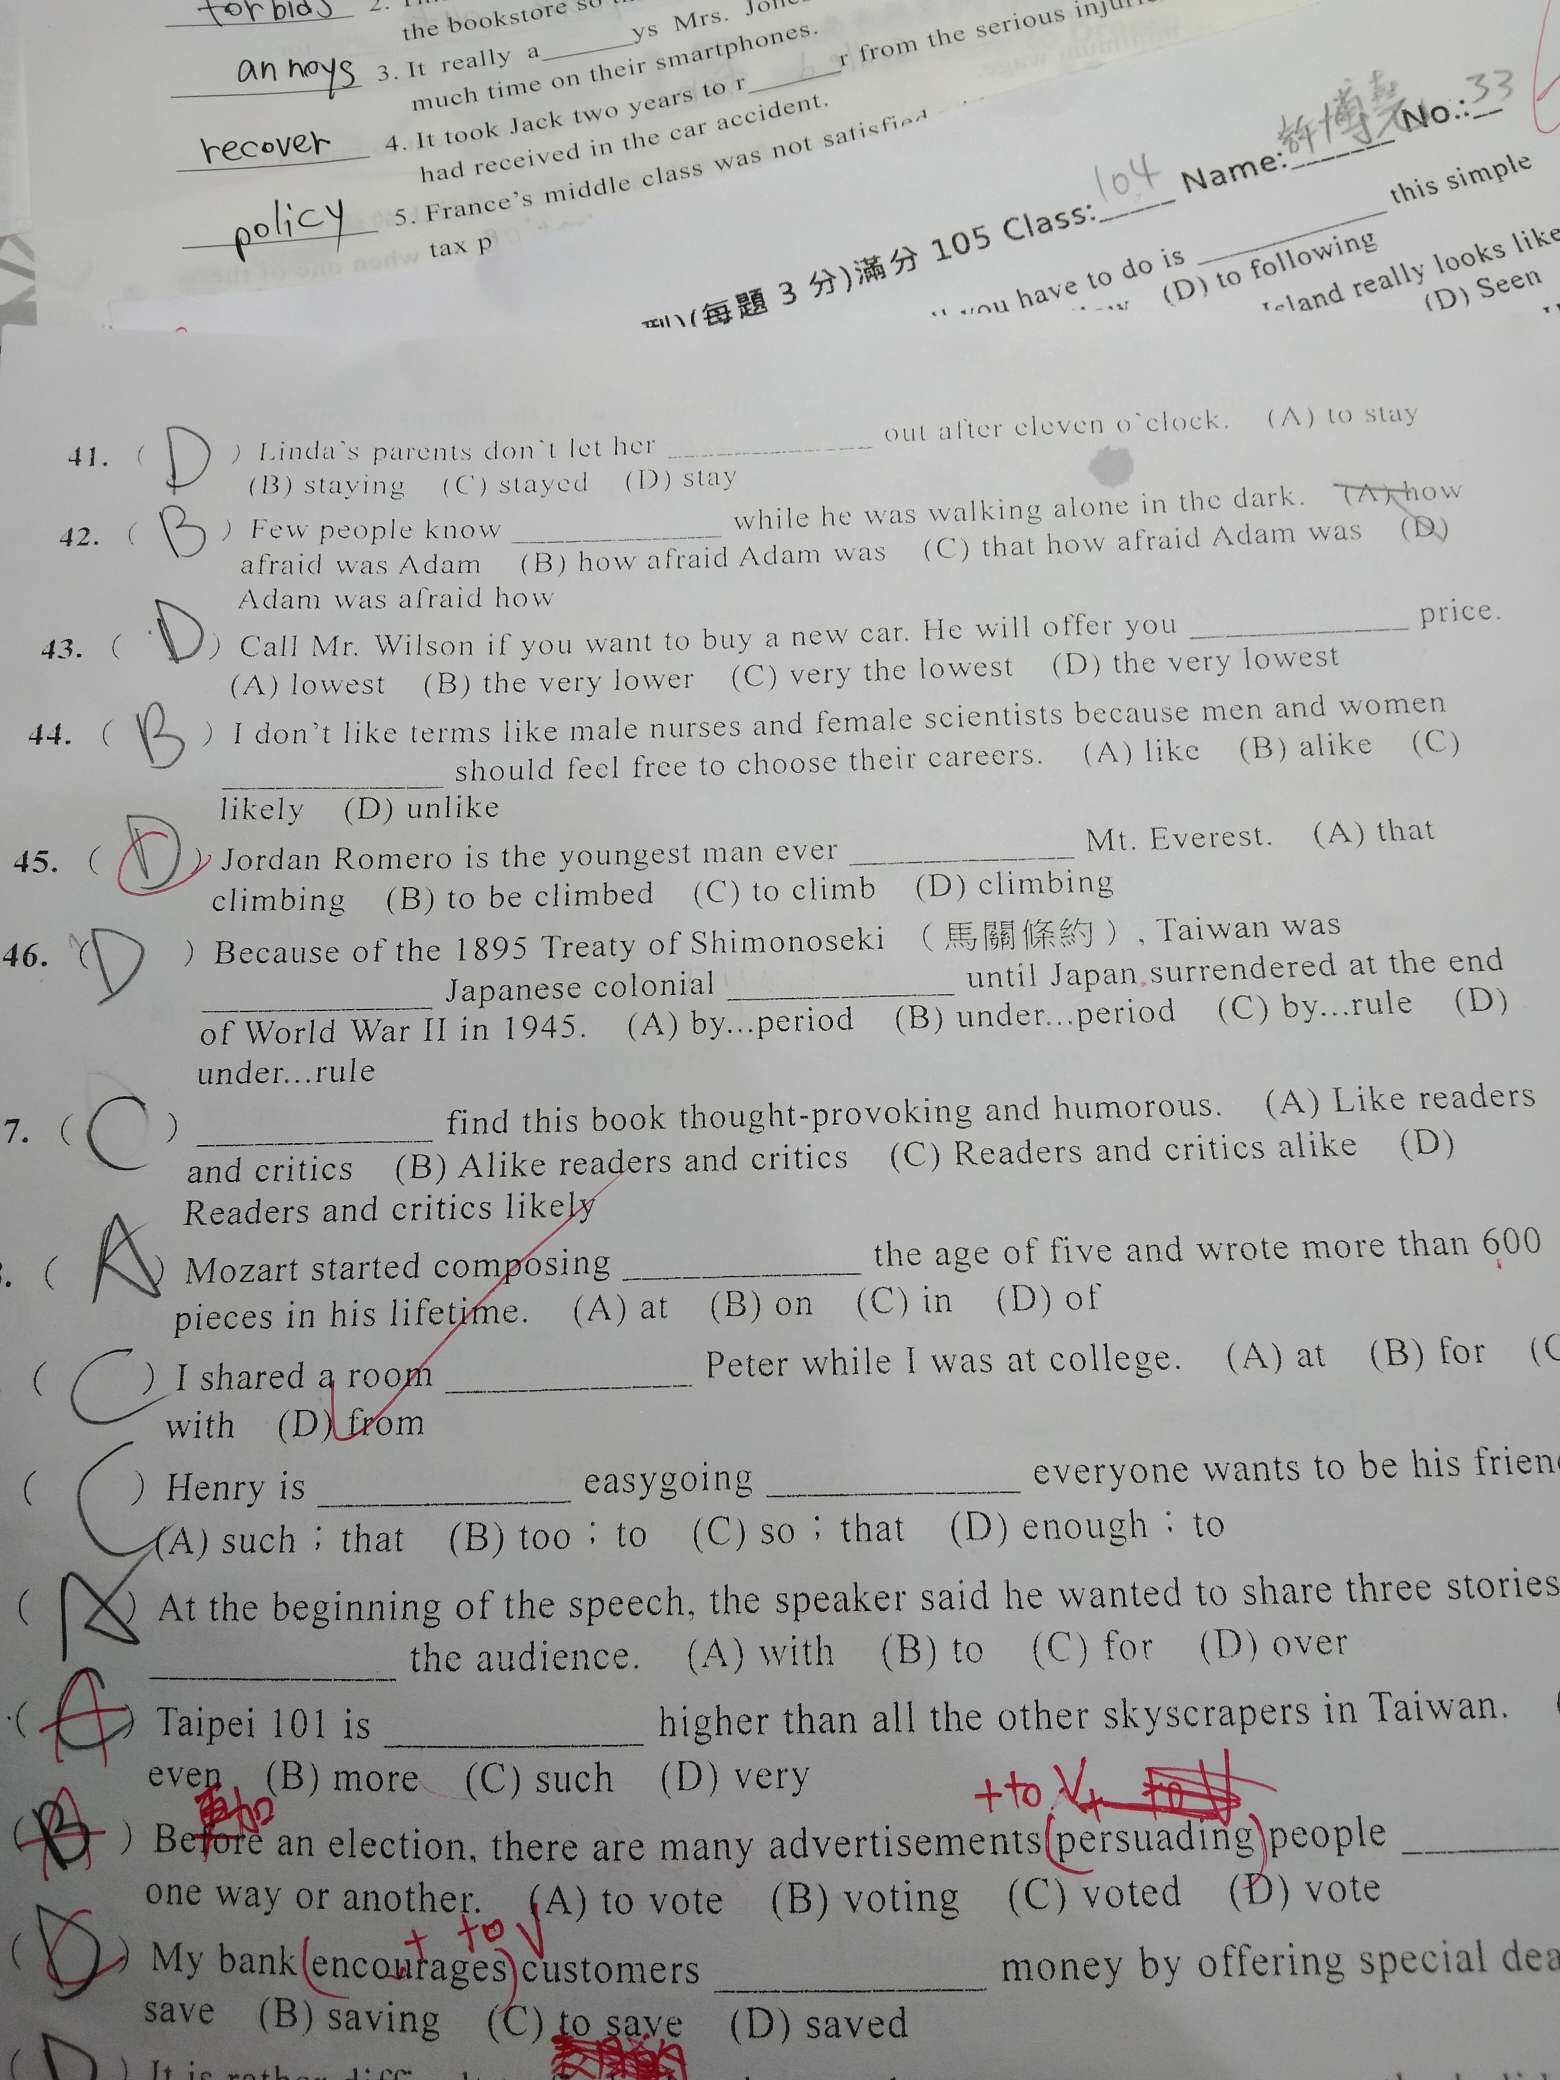 forbids 2.
the bookstore so
annoys 3. It really a______ys Mrs.
much time on their smartphones.
recover 4. It took Jack two years to r______r from the serious
had received in the car accident.
policy 5. France's middle class was not satisfied
tax p
(每題 3 分)滿分 105 Class: 104 Name: 許博堯 No.: 33
you have to do is ______ this simple
(D) to following
Island really looks like
(D) Seen
41. ( D ) Linda's parents don't let her ______ out after eleven o'clock. (A) to stay
(B) staying (C) stayed (D) stay
42. ( B ) Few people know ______ while he was walking alone in the dark. (A) how
afraid was Adam (B) how afraid Adam was (C) that how afraid Adam was (D)
Adam was afraid how
43. ( D ) Call Mr. Wilson if you want to buy a new car. He will offer you ______ price.
(A) lowest (B) the very lower (C) very the lowest (D) the very lowest
44. ( B ) I don't like terms like male nurses and female scientists because men and women
______ should feel free to choose their careers. (A) like (B) alike (C)
likely (D) unlike
45. ( D C ) Jordan Romero is the youngest man ever ______ Mt. Everest. (A) that
climbing (B) to be climbed (C) to climb (D) climbing
46. ( D ) Because of the 1895 Treaty of Shimonoseki （馬關條約）, Taiwan was
______ Japanese colonial ______ until Japan surrendered at the end
of World War II in 1945. (A) by...period (B) under...period (C) by...rule (D)
under...rule
7. ( C ) ______ find this book thought-provoking and humorous. (A) Like readers
and critics (B) Alike readers and critics (C) Readers and critics alike (D)
Readers and critics likely
. ( A ) Mozart started composing ______ the age of five and wrote more than 600
pieces in his lifetime. (A) at (B) on (C) in (D) of
( C ) I shared a room ______ Peter while I was at college. (A) at (B) for (C
with (D) from
( C ) Henry is ______ easygoing ______ everyone wants to be his frien
(A) such；that (B) too；to (C) so；that (D) enough；to
( A ) At the beginning of the speech, the speaker said he wanted to share three stories
______ the audience. (A) with (B) to (C) for (D) over
( A ) Taipei 101 is ______ higher than all the other skyscrapers in Taiwan. (
even (B) more (C) such (D) very
更加 +to V
( B A ) Before an election, there are many advertisements (persuading) people ______
one way or another. (A) to vote (B) voting (C) voted (D) vote
+ to V
( D C ) My bank (encourages) customers ______ money by offering special dea
save (B) saving (C) to save (D) saved
( D ) It is